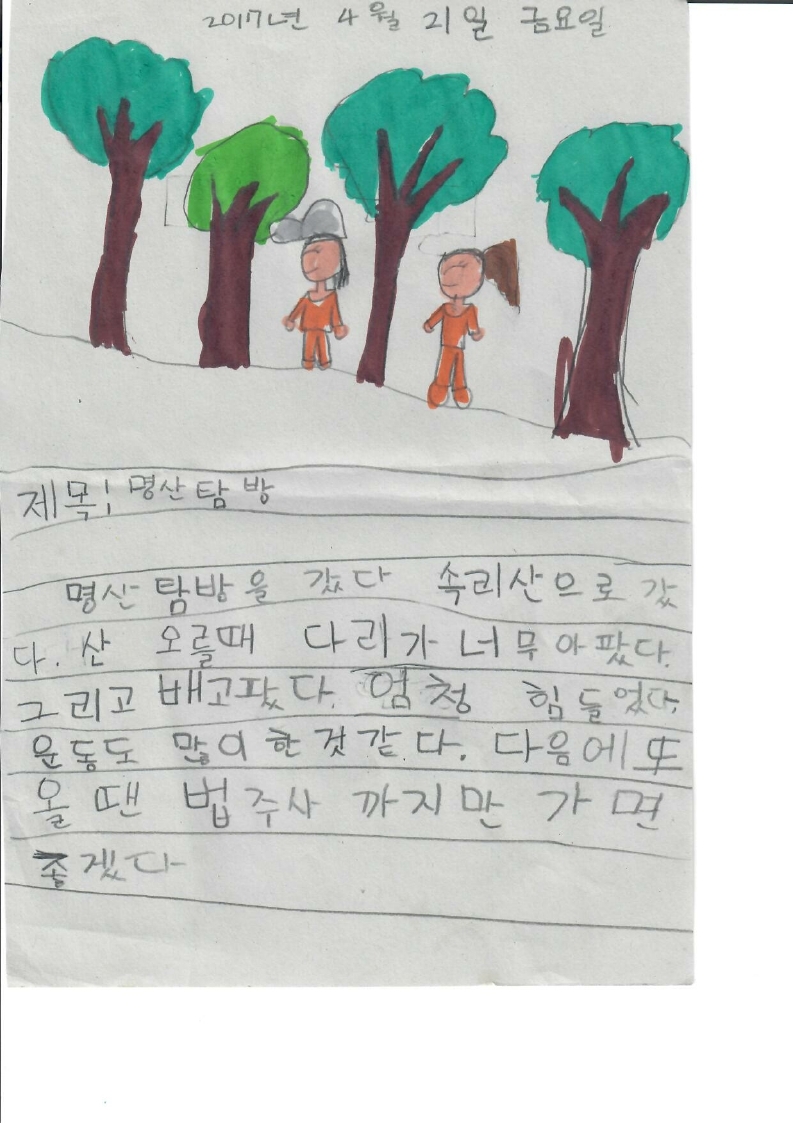 2017년 4월 21일 금요일
제목! 명산탐방
명산탐방을 갔다 속리산으로 갔
다. 산 오를때 다리가 너무 아팠다.
그리고 배고팠다. 엄청 힘들었다.
운동도 많이 한것같다. 다음에 또
올땐 법주사 까지만 가면
좋겠다